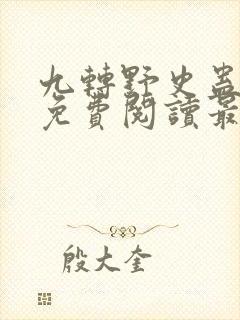 九轉野史蛊
免費閱讀最
殷大奎